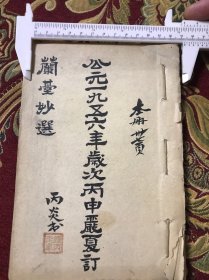 本冊廿頁
公元一九五六年歲次丙申麗夏訂
蘭臺妙選
丙炎書